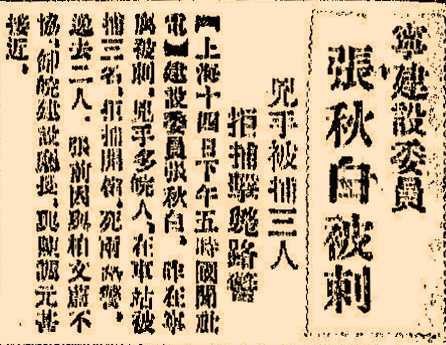 寧建設委員
張秋白被刺
兇手被捕三人
拒捕擊斃路警
【上海十四日下午五時國聞社
電】建設委員張秋白，昨在寧
寓被刺，兇手多皖人，在車站被
捕三名，拒捕開槍，死兩路警，
逸去二人，張前因與柏文蔚不
協，卸皖建設廳長，與陳調元甚
接近，